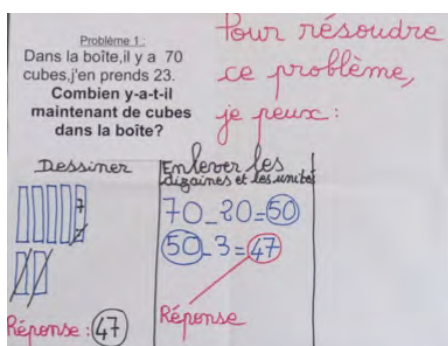 Problème 1 :
Dans la boîte,il y a 70
cubes,j'en prends 23.
Combien y-a-t-il
maintenant de cubes
dans la boîte?
Pour résoudre
ce problème,
je peux :
Dessiner
7
Réponse : 47
Enlever les
dizaines et les unités
70_20=50
50_3=47
Réponse